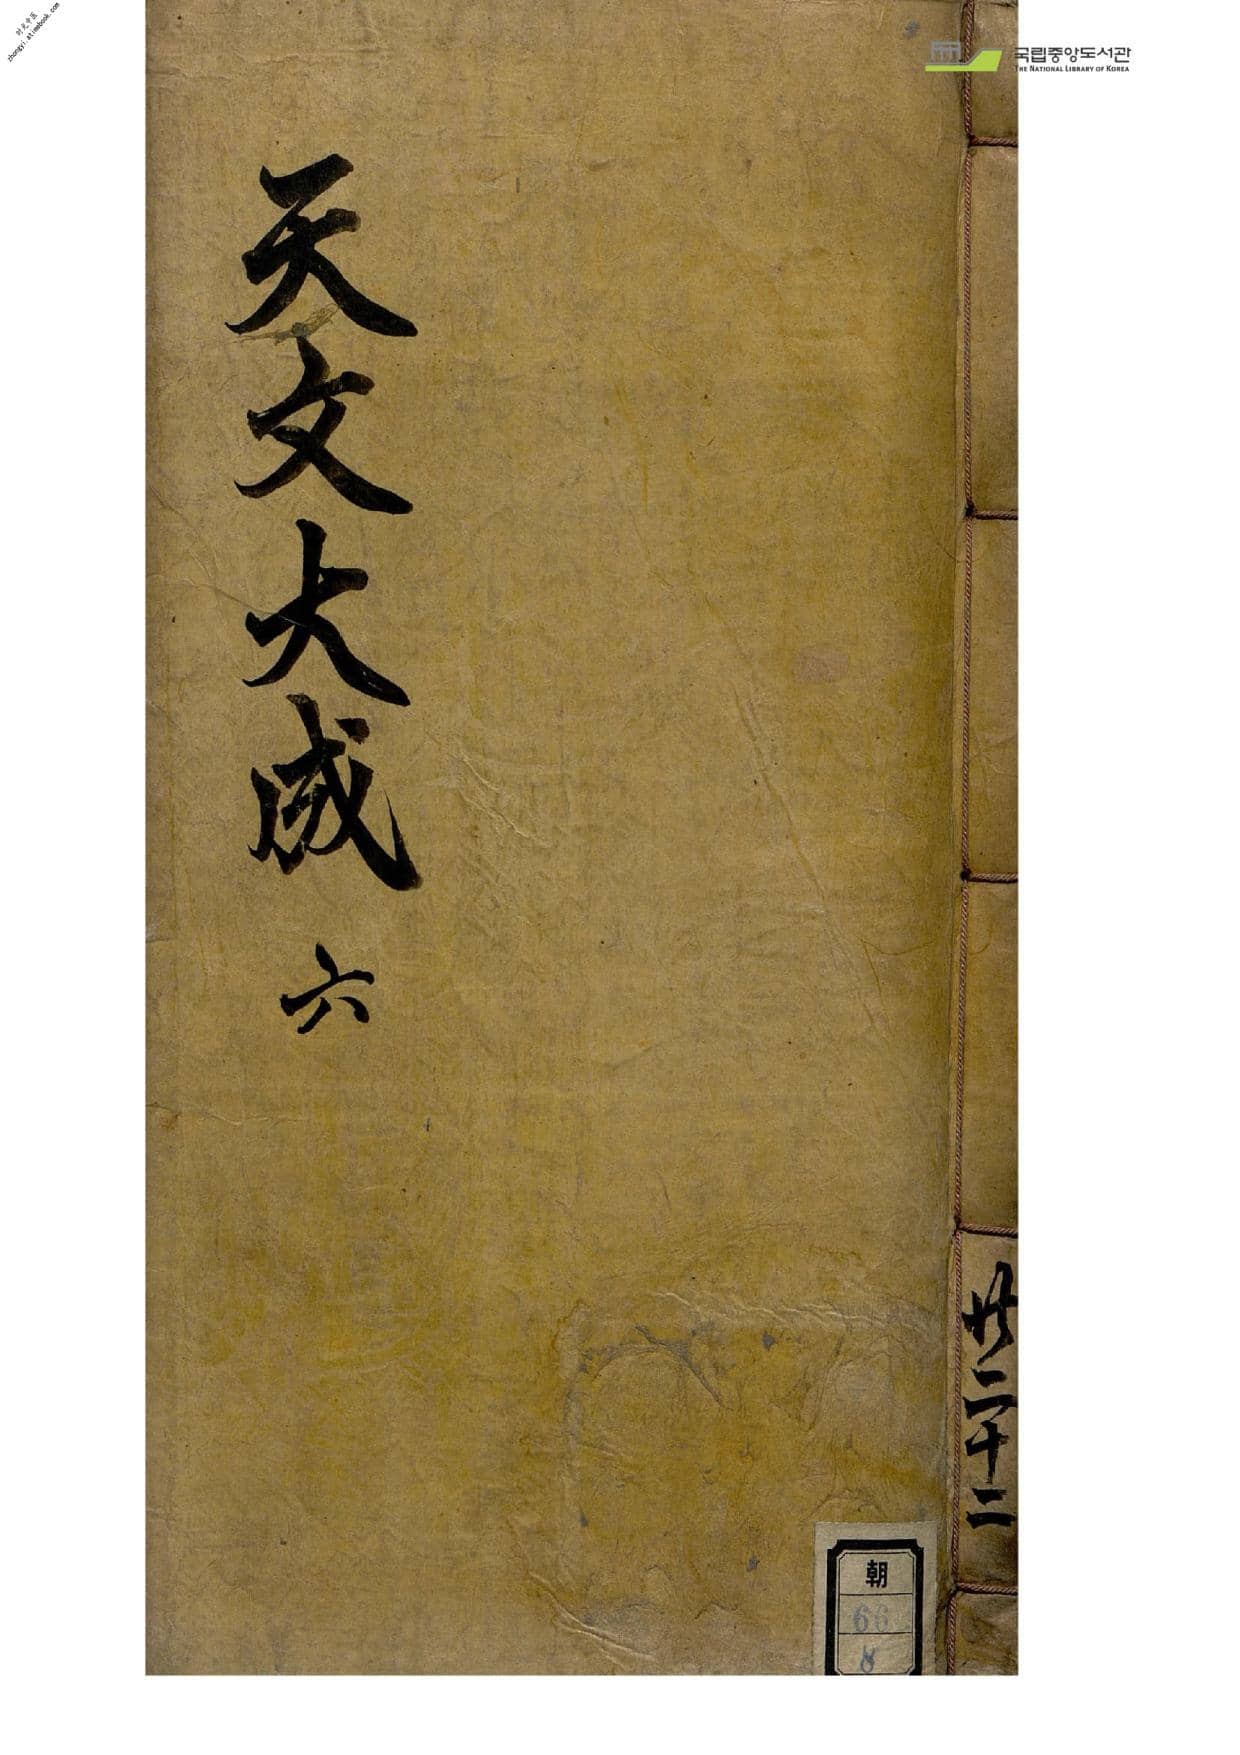 时光中医
zhongyi.atimebook.com
국립중앙도서관
THE NATIONAL LIBRARY OF KOREA
天文大成 六
共二十二
朝
66
8